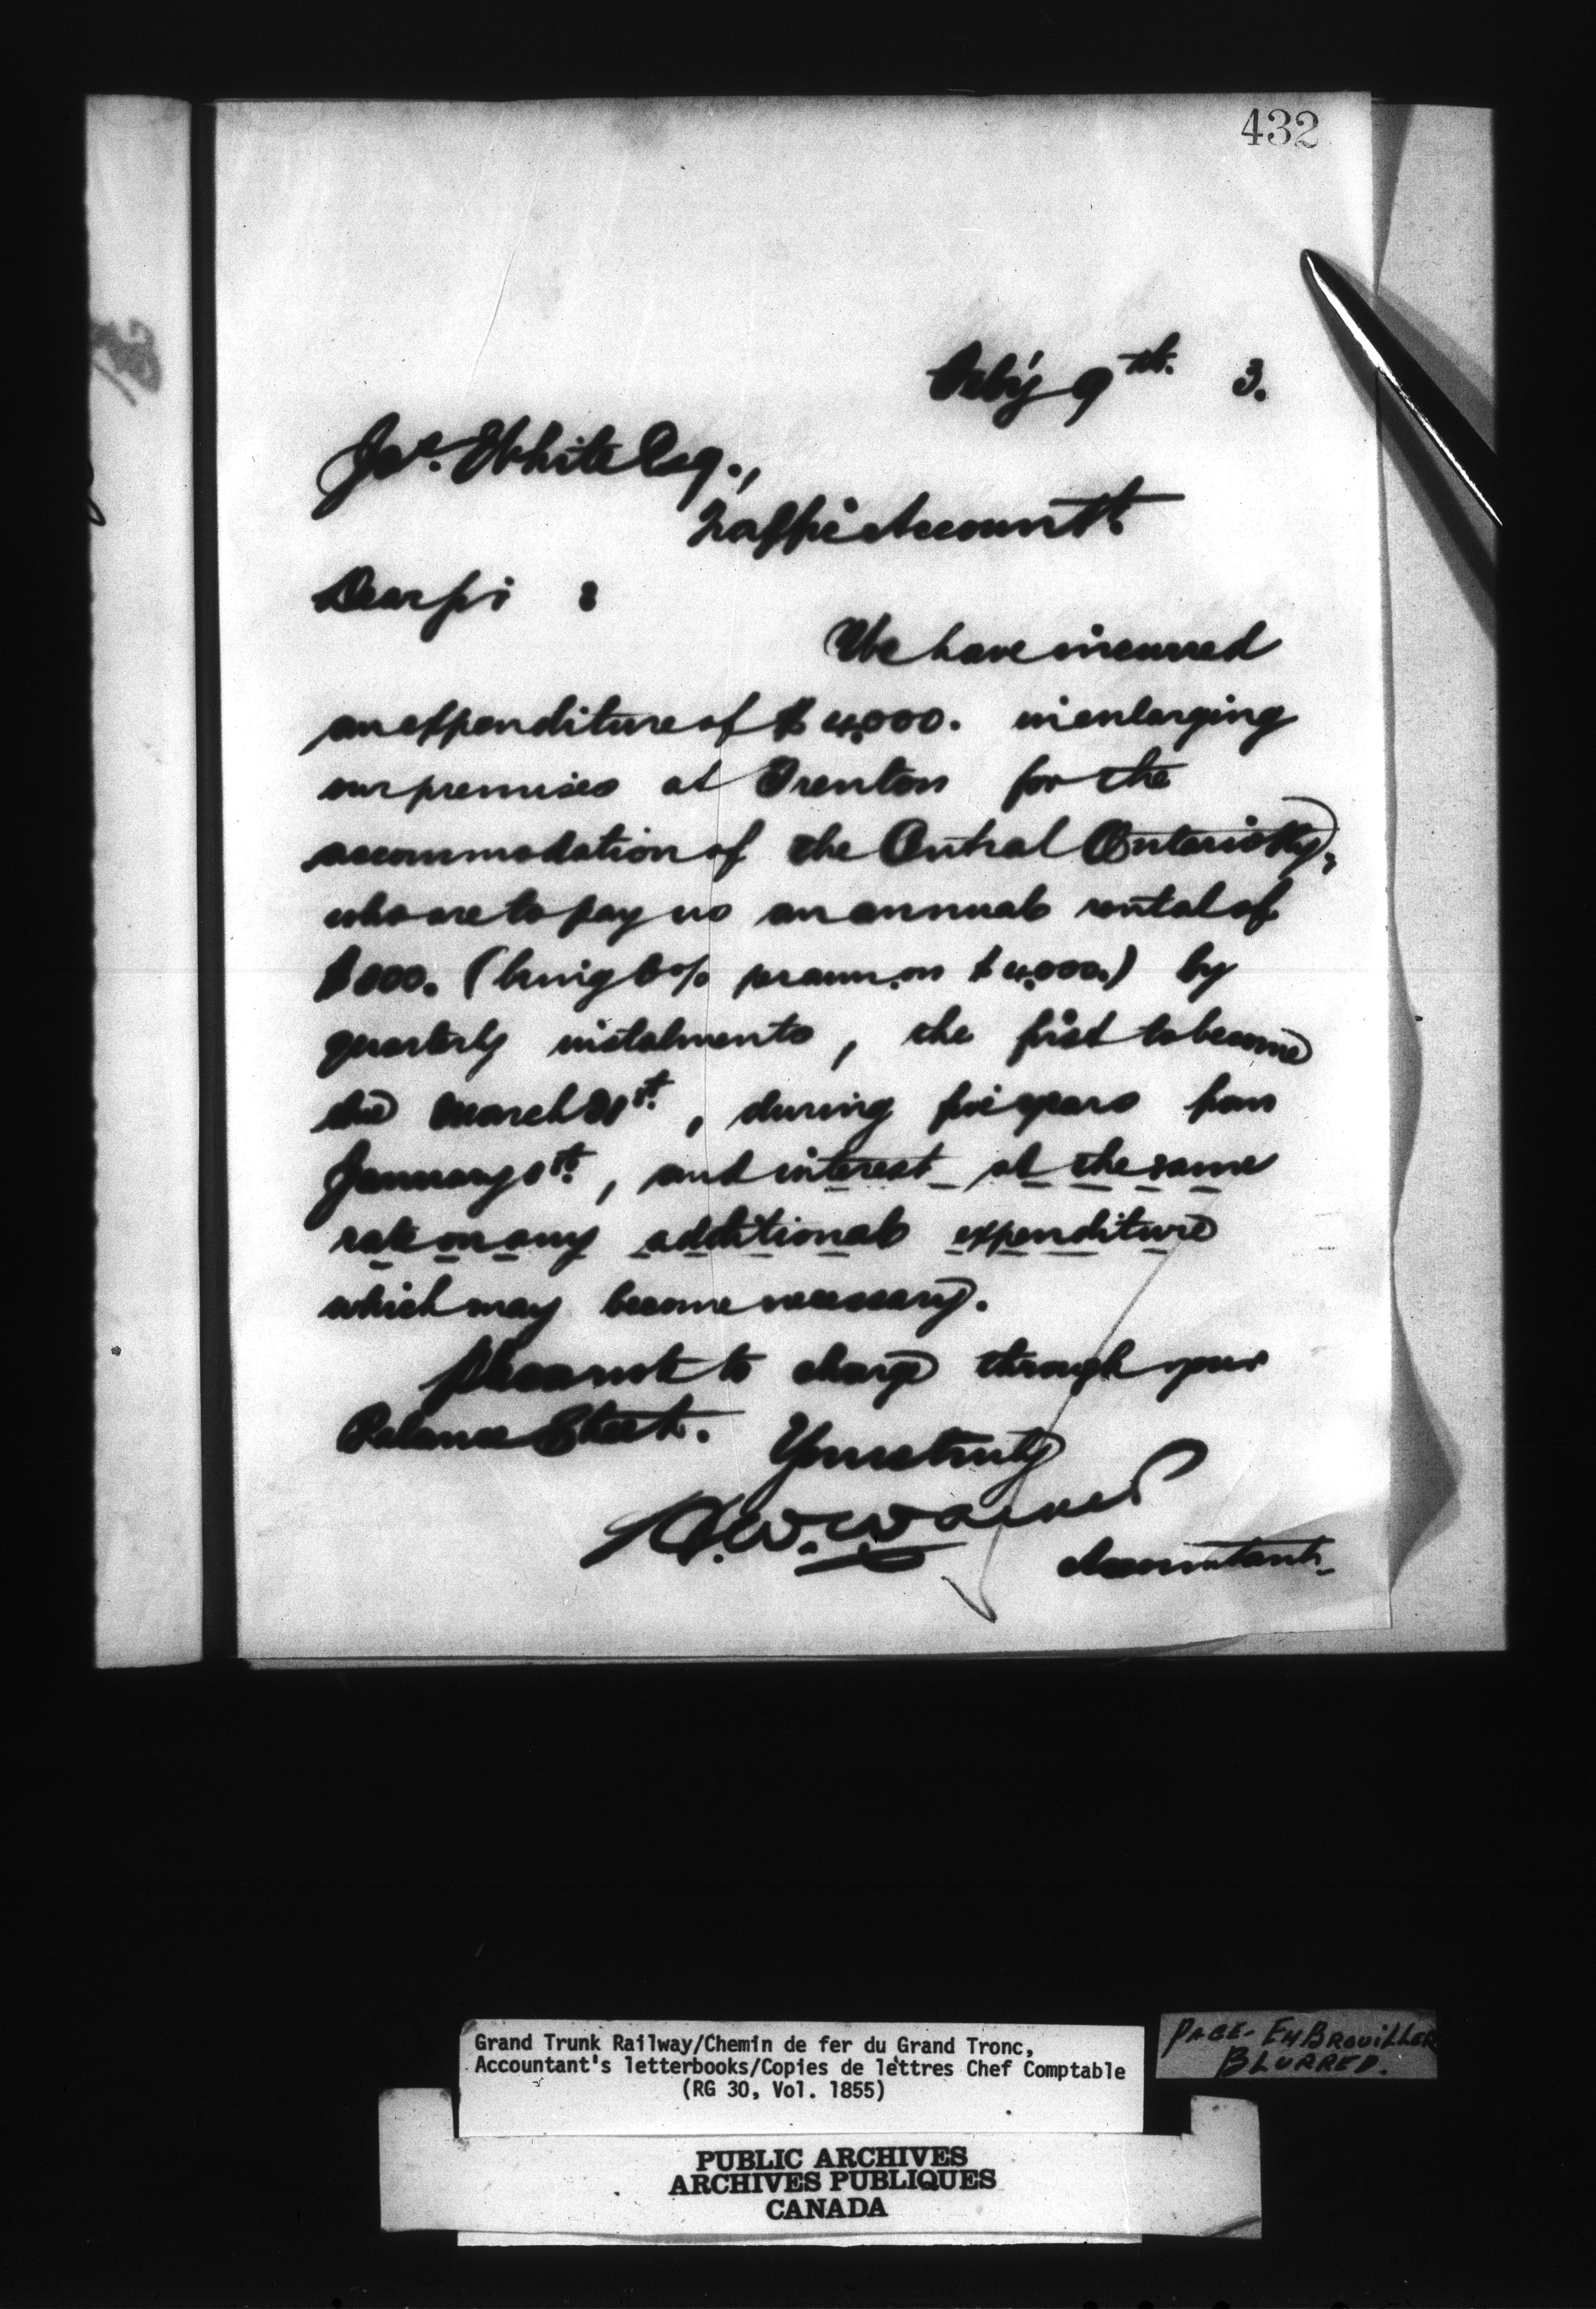 432
Feb'y 9th. 3.
Jas. White Esq.,
Traffic Accountt.
Dear Sir :
We have incurred
an expenditure of $4,000. in enlarging
our premises at Trenton for the
accommodation of the Central Ontario Ry,
who are to pay us an annual rental of
(being % per annum on $4,000.) by
quarterly instalments, the first to become
due March 31st., during five years from
January 1st., and interest at the same
rate on any additional expenditure
which may become necessary.
Please note to charge through your
Balance Sheet.
Yours truly
H.W. Walker
Accountant.
Grand Trunk Railway/Chemin de fer du Grand Tronc,
Accountant's letterbooks/Copies de lettres Chef Comptable
(RG 30, Vol. 1855)
PAGE- EMBROUILLER
BLURRED.
PUBLIC ARCHIVES
ARCHIVES PUBLIQUES
CANADA